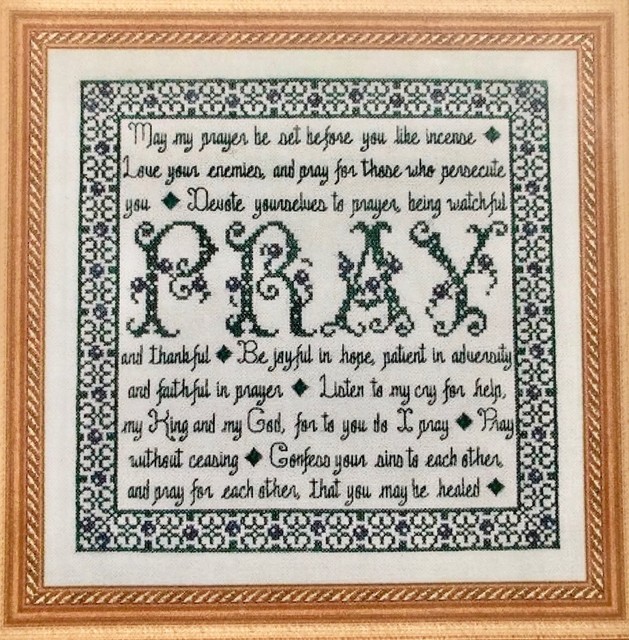 May my prayer be set before you like incense ◆
Love your enemies, and pray for those who persecute
you ◆ Devote yourselves to prayer, being watchful
PRAY
and thankful ◆ Be joyful in hope, patient in adversity
and faithful in prayer ◆ Listen to my cry for help,
my King and my God, for to you do I pray ◆ Pray
without ceasing ◆ Confess your sins to each other,
and pray for each other, that you may be healed ◆